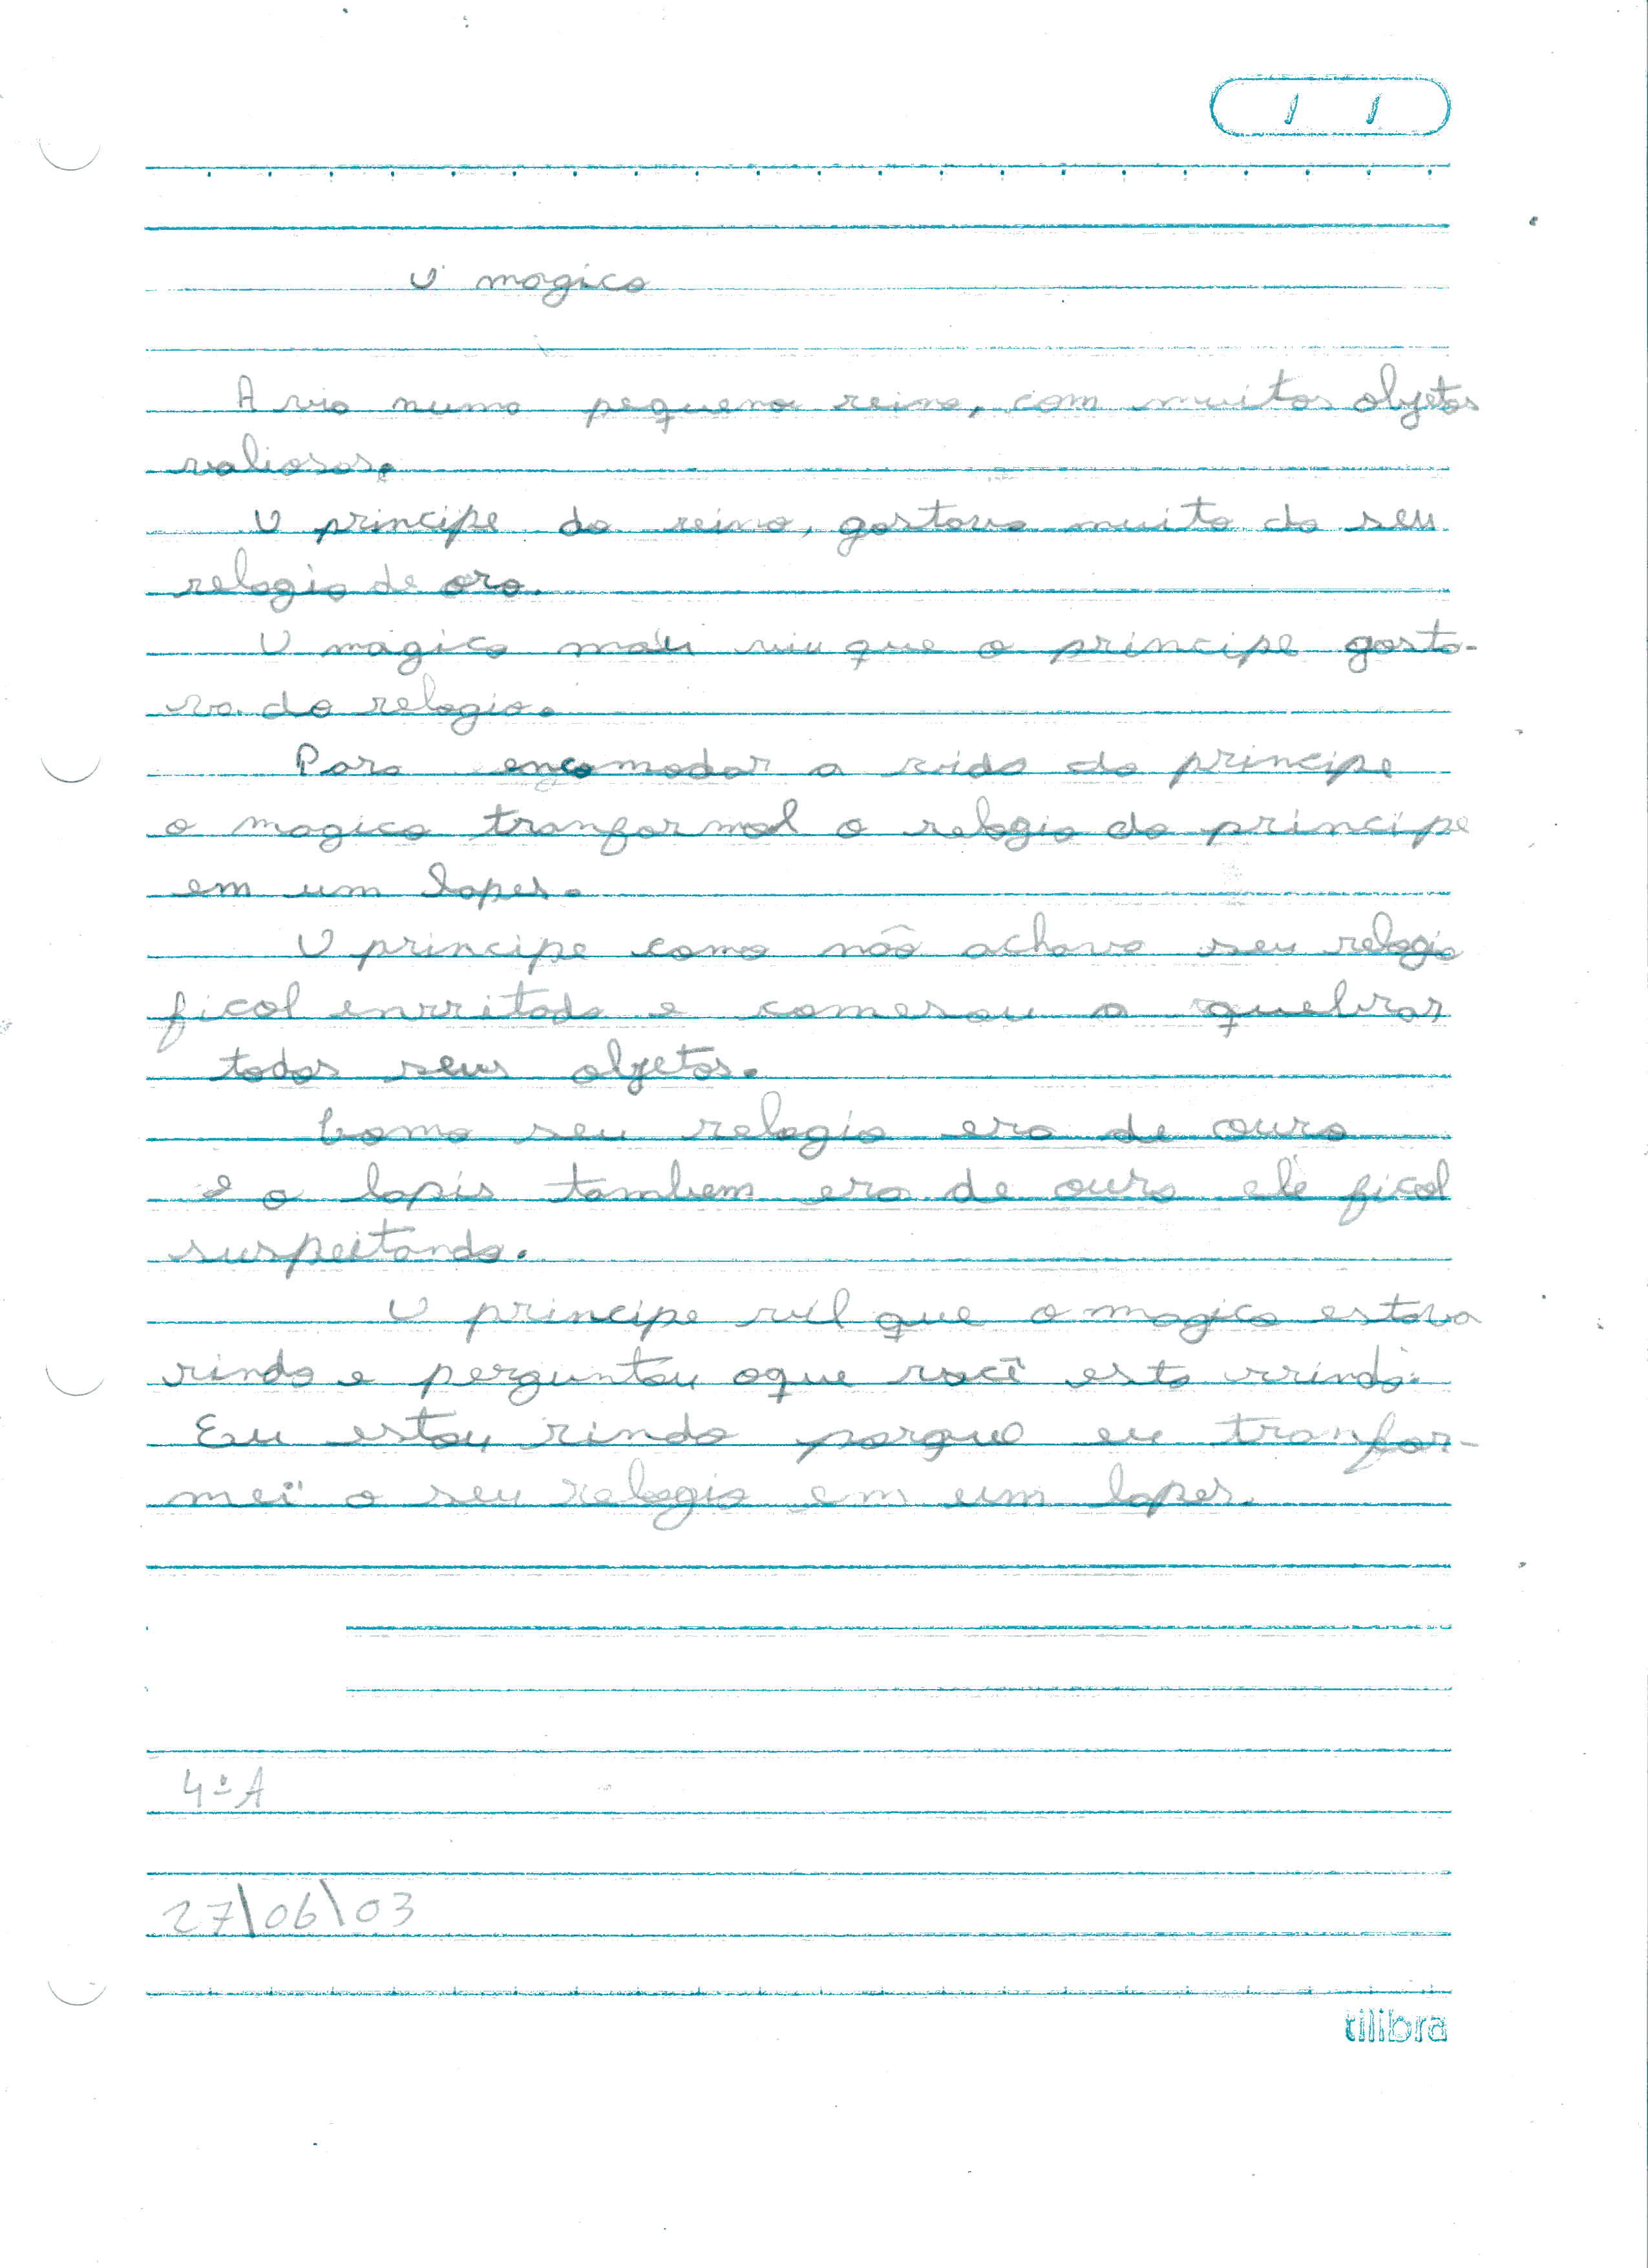 O magico
A via numa pequeno reino, com muitos objetos
valiosos.
O principe do reino, gostava muito do seu
relogio de oro.
O magico mau viu que o principe gosta-
va do relogio.
Para encomodar a vida do principe
o magico tranformol o relogio do principe
em um lapes.
O principe como não achava seu relogio
ficol enrritado e comesou a quebrar
todos seus objetos.
Como seu relogio era de ouro
e o lapis tambem era de ouro ele ficol
suspeitando.
O principe vil que o magico estava
rindo e perguntou oque você esta rrindo.
Eu estou rindo porque eu tranfor-
mei o seu relogio em um lapes.
4ª A
27\06\03
tilibra